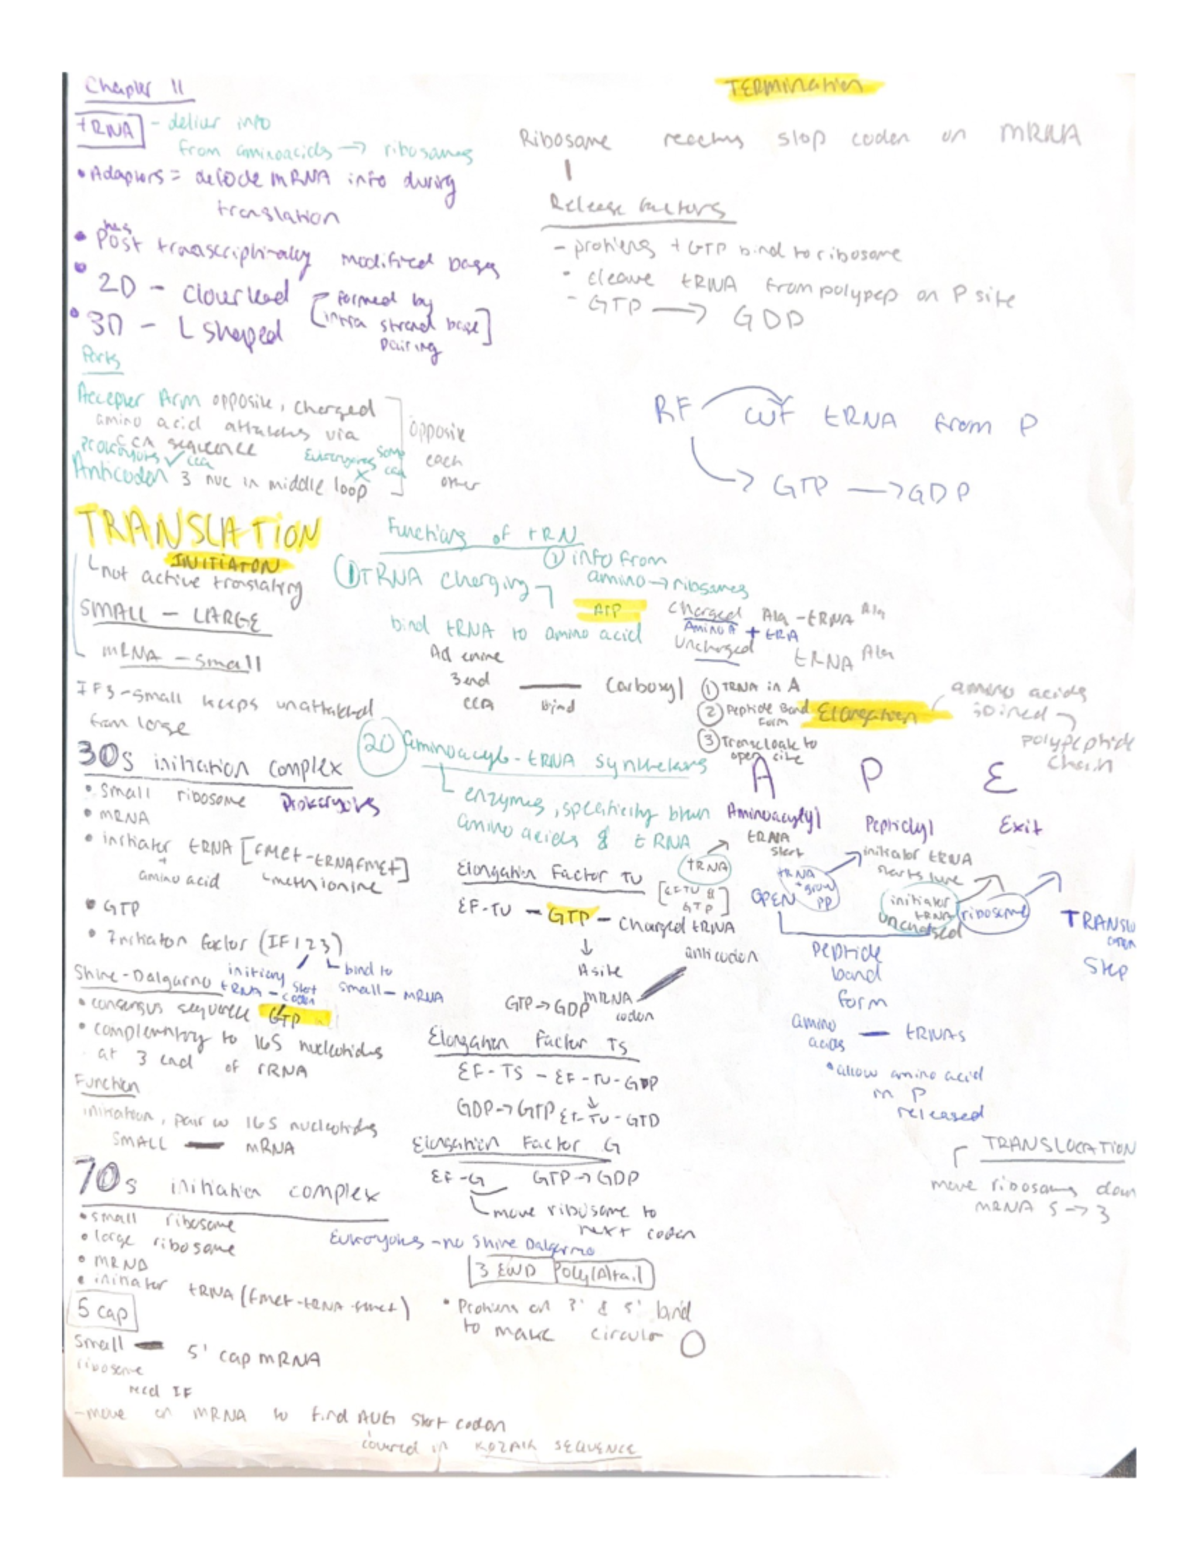 Chapter 11
tRNA - deliver info
from aminoacids → ribosomes
• Adaptors = decode mRNA info during
translation
• has Post transcriptionally modified bases
• 2D - cloverlead
• 3D - L shaped
[formed by
intra strand base]
pairing
Parts
Acceptor Arm opposite, charged
amino acid attaches via
CCA sequence
Prokaryotes ✓ CCA
Eukaryotes some CCA X
Anticodon 3 nuc in middle loop
opposite
each
other
TERMINATION
Ribosome reaches stop codon on mRNA
Release factors
- proteins + GTP bind to ribosome
- cleave tRNA from polypep on P site
- GTP → GDP
RF cut tRNA from P
→ GTP → GDP
TRANSLATION
INITIATON
not active translating
SMALL - LARGE
mRNA - small
IF3 - small keeps unattached
from large
30s initiation complex
• small ribosome Prokaryotes
• mRNA
• initiator tRNA [fmet-tRNAfmet]
amino acid methionine
• GTP
• Initiaton factor (IF 1 2 3)
bind to
small - mRNA
Shine-Dalgarno
tRNA - codon
GTP
• consensus sequence
• complemntry to 16S nucleotides
at 3 end of rRNA
Function
initiation, pair w 16S nucleotides
SMALL — mRNA
70s initiation complex
• small ribosome
• large ribosome
• mRNA
• initiator tRNA (fmet-tRNA-fmet)
5 cap
small — 5' cap mRNA
ribosome
need IF
- move on mRNA to find AUG start codon
covered in KOZAK SEQUENCE
Functions of tRN
① info from
amino → ribosomes
① tRNA charging
bind tRNA to amino acid
ATP
Charged Ala-tRNA Ala
Amino A + tRA
Uncharged tRNA Ala
Adenine
3 end
CCA
— bind
Carboxyl
20 aminoacyl-tRNA synthetases
enzymes, specificity btwn
amino acids & tRNA
Elongation Factor Tu
EF-TU - GTP - Charged tRNA
↓
A site
GTP → GDP
mRNA
codon
anticodon
tRNA
[EFTU &
GTP]
Elongation Factor TS
EF-TS - EF-TU-GDP
GDP → GTP EF-TU-GTP
Elongation Factor G
EF-G GTP → GDP
move ribosome to
next codon
Eukaryotes - no Shine Dalgarno
3 END Poly(A)tail
• Proteins on 3' & 5' bind
to make circular
① TRNA in A
② Peptide Bond
form
③ Translocate to
open site
Elongation
amino acids
joined
polypeptide
chain
A P E
Aminoacylyl Peptidyl Exit
tRNA
start
initiator tRNA
starts here
OPEN
tRNA
+ grow
PP
initiator
tRNA
uncharged
ribosome
TRANSLO
Step
peptide
bond
form
amino
acids — tRNAs
• allow amino acid
in P
released
TRANSLOCATION
move ribosomes down
mRNA 5 → 3